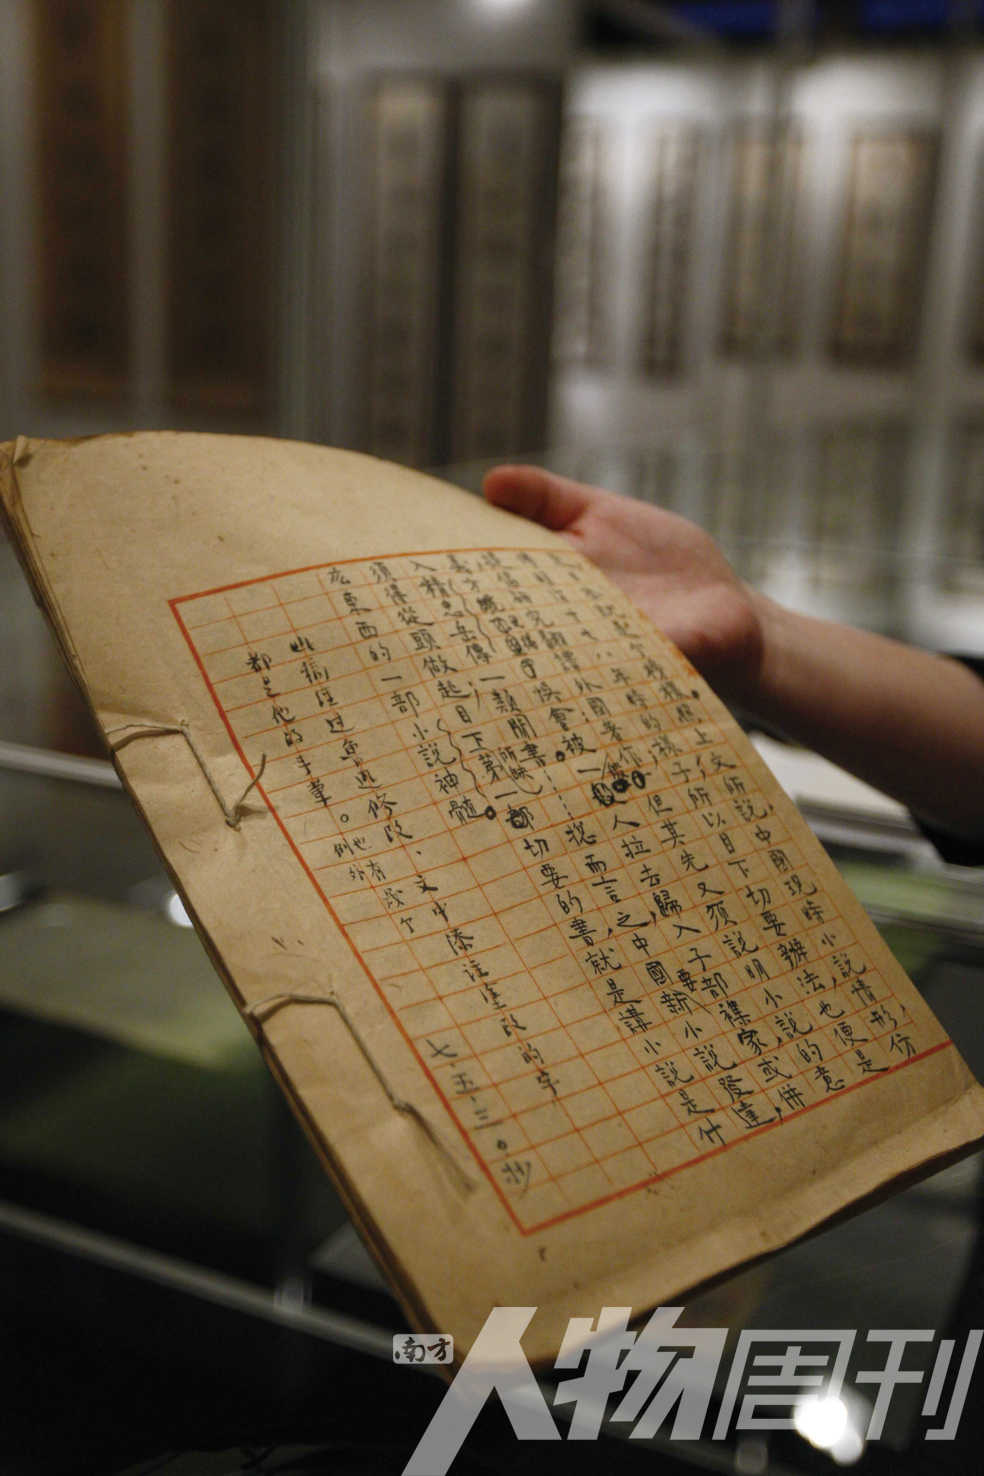 榜樣。照上文所說，中國現時小說情形，仿
十七八年時的樣子，所以目下切要辦法，也便是
翻譯外國著作。但其先又須說明小說的意
義，方 誤會被一般人拉去，歸入子部襍家，或併
入精忠岳傳，一類閒書。……總而言之，中國要新小說發達，
須得從頭做起；目下所缺第一部切要的書，就是講小說是什
広東西的一部小說神髓。
此稿經過魯迅修改、文中添注塗改的字
都是他的手筆。也有幾个例外
七．五．三。抄
南方
人物周刊